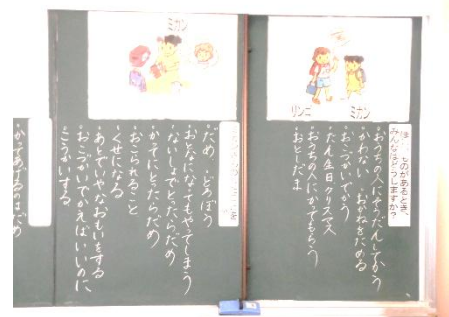 リンニ
ミカン
ものがあるとき、
みんなはどうしますか?
・おうちの人にそうだんしてかう
・かわない
・おかねをためる
・おこづかいでかう
・たん生日クリスマス
・おうちの人にかってもらう
・おとしだま
ミカン
・だめ
・どろぼう
・おとなになってもやってしまう
・ないしょでとったらだめ
・かってにとったらだめ
・おこられること
・くせになる
・あとでいやなおもいをする
・おこづかいでかえばいいのに、
・こうかいする
・かってあげるのはだめ